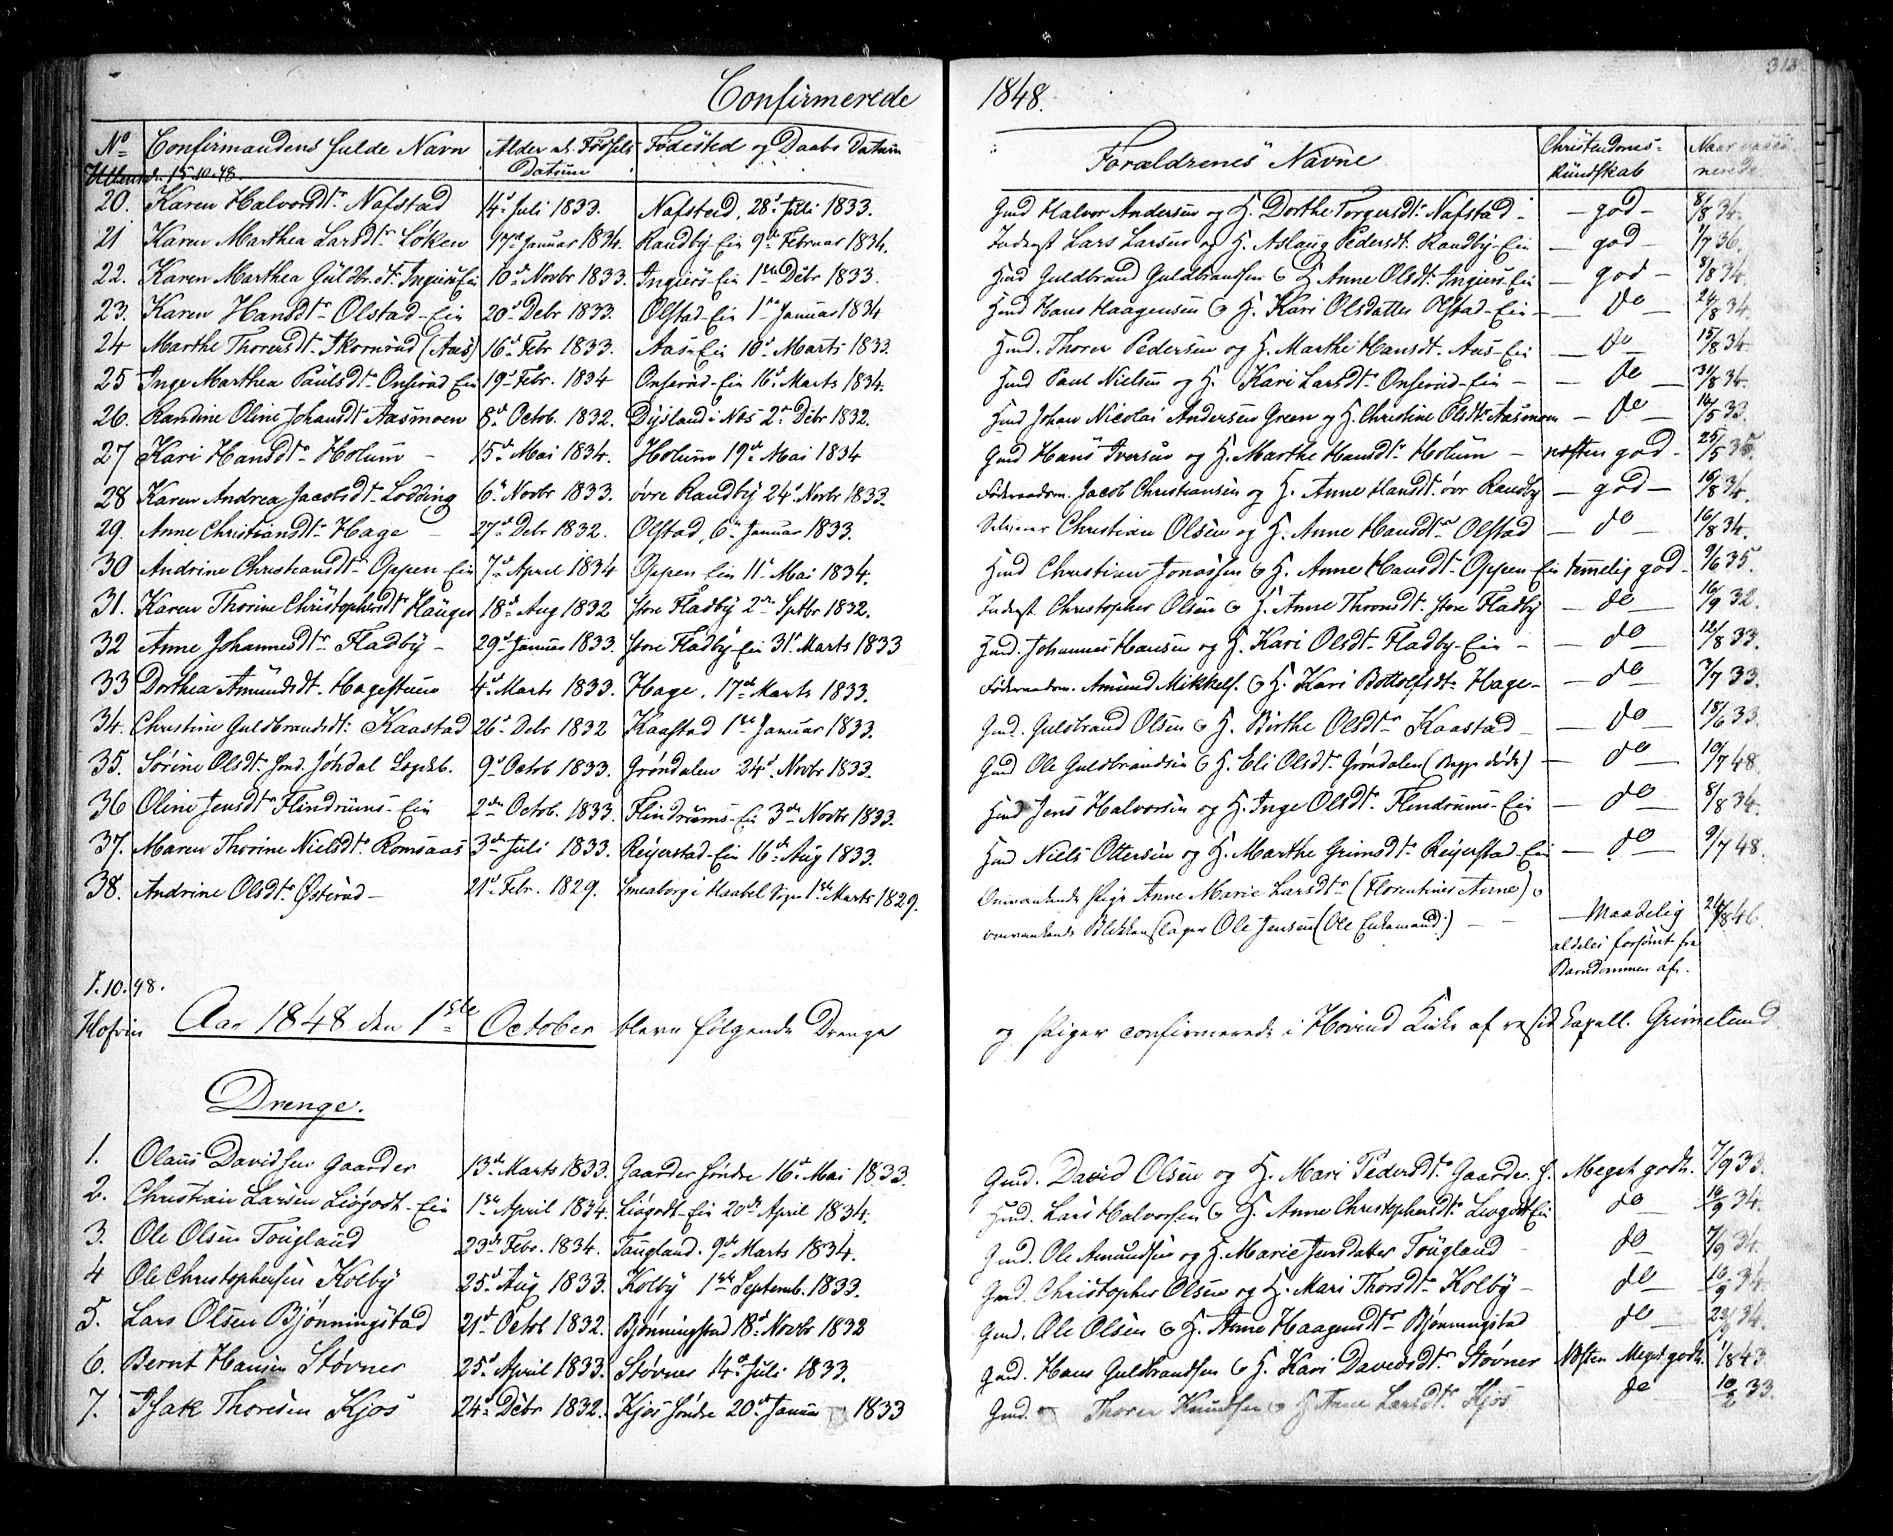 Confirmerede 1848.
313
No Confirmandens fulde Navn Alder el. Fødsels Datum Fødested og Daabs Datum Forældrenes Navne Christendoms-Kundskab Naar vacci-nerede
15.10.48.
20. Karen Halvorsdtr Nafstad 14d Juli 1833. Nafstad, 28d Juli 1833. Gmd Halvor Andersen og H. Dorthe Torgersdtr Nafstad - god - 8/8 34.
21 Karen Marthea Larsdtr Løken 17d Januar 1834. Randby-Ein 9de Februar 1834. Inderst Lars Larsen og H. Aslaug Pedersdt. Randby-Ein - god - 7/7 36.
22. Karen Marthea Guldbr.dt. Ingiers Ein 10d Novbr 1833. Ingiers-Ein 1ste Debr 1833. Hmd Guldbrand Guldbrandsen & H. Anne Olsdt. Ingiers-Ein - god - 8/8 34.
23. Karen Hansdtr Olstad-Ein 20d Debr 1833. Olstad-Ein 1ste Januar 1834 Hmd Hans Haagensen & H. Kari Olsdatter Olstad-Ein - do - 24/8 34.
24 Marthe Thorersdt. Skornrud (Aas) 16d Febr 1833. Aas-Ein 10d Marts 1833. Hmd. Thorer Pedersen og H. Marthe Hansdt. Aas-Ein - do - 15/8 34.
25 Inge Marthea Paulsdt. Onsrud Ein 19d Febr. 1834 Onsrud-Ein 16d Marts 1834. Hmd Paul Nielsen og H. Kari Larsdt. Onsrud-Ein - do - 31/8 34.
26. Randine Oline Johansdt. Aasmoen 8d Octob. 1832. Dysland i Næs 2d Debr 1832. Hmd Johan Nicolai Andersen Green og H. Christine Olsdtr Aasmoen - do - 16/5 33.
27 Kari Hansdtr Holum - 15d Mai 1834. Holum 19d Mai 1834 Gmd Hans Iversen og H. Marthe Hansdt. Holum - næsten god - 25/5 35.
28 Karen Andrea Jacobsdt. Lodding 6d Novbr 1833. øvre Randby 24d Novbr 1833. Føderaadsm. Jacob Christiansen og H. Anne Hansdt. øvr Randby - god - 16/8 34.
29. Anne Christiansdtr Hage - 27d Debr 1832. Olstad, 6d Januar 1833. Christian Olsen og H. Anne Hansdtr Olstad - do - 16/8 34.
30 Andrine Christiansdtr Oppen-Ein 7d April 1834 Oppen Ein 11d Mai 1834. Hmd Christian Jonassen & H. Anne Hansdt. Oppen-Ein temmelig god - 9/6 35.
31. Karen Thorine Christophersdt. Hauger 18d Aug 1832 Store Fladby 2den Septbr 1832. Inderst Christopher Olsen & H. Anne Thorsdt. Store Fladby - do - 16/9 32.
32 Anne Johannesdtr Fladby - 29d Januar 1833. Store Fladby-Ein 31d Marts 1833 Hmd. Johannes Hansen og H. Kari Olsdt. Fladby-Ein - do - 12/8 33.
33 Dorthea Amundsdt. Hagestuen 4d Marts 1833. Hage. 17de Marts 1833. Føderaadsm. Amund Mikkels. & H. Kari Bottolfsdt. Hage - do - 7/7 33.
34. Christine Guldbrandsdt. Kaastad 26d Debr 1832 Kaastad 1ste Januar 1833. Gmd. Guldbrand Olsen & H. Birthe Olsdtr Kaastad - do - 18/6 33.
35. Sørine Olsdt. 9d Octob 1833. Grøndalen 24d Novbr 1833. Gmd Ole Guldbrandsen & H. Eli Olsdt. Grøndalen (begge døde) - do - 10/7 48.
36 Oline Jensdtr Flindrums-Ein 2den Octob. 1833. Flindrums-Ein 3de Novbr 1833. Hmd Jens Halvorsen og H. Inge Olsdt. Flindrums-Ein - do - 8/8 34.
37. Maren Thorine Nielsdt. Romsaas 3de Juli 1833. Reierstad-Ein 16de Aug 1833. Hmd Niels Ottersen og H. Marthe Grimsdt. Reierstad-Ein - do - 9/7 48.
38. Andrine Olsdtr Østerud - 21d Febr. 1829. Smeaborg i Haabel Sogn 1ste Marts 1829. Omvankende Pige Anne Marie Larsdtr (Florentines Anne) &
omvankende Blikkenslager Ole Jensen (Ole Enkemand.) - Maadelig 24/8 46.
aldeles forsømt fra
Barndommen af.
1.10.48.
Hofvin Aar 1848 den 1ste October bleve følgende Drenge og Piger confirmerede i Hovind Kirke af resid. Capell. Grimelund
Drenge.
1. Olaus Davidsen Gaarder 13de Marts 1833. Gaarder søndre 16de Mai 1833. Gmd. David Olsen og H. Mari Pedersdtr Gaarder. s. Meget godt. 7/9 33.
2. Christian Larsen Liøgodt-Ein 1ste April 1834. Liøgodt-Ein 20de April 1834. Hmd. Lars Halvorsen & H. Anne Christophersdt. Liøgodt Ein do 16/9 34.
3. Ole Olsen Tougland 23de Febr. 1834. Tougland. 9de Marts 1834. Gmd. Ole Amundsen og H. Marie Jensdatter Tougland do 7/9 34.
4 Ole Christophersen Kolby 25d Aug 1833. Kolby 1ste Septemb. 1833. Gmd. Christopher Olsen og H. Mari Thorsdt. Kolby - do 10/9 34.
5. Lars Olsen Bjønningstad 21d Octob 1832. Bjønningstad 18d Novbr 1832 Gmd. Ole Olsen & H. Anne Haagensdtr Bjønningstad do 34.
6. Bernt Hansen Støvner 25d April 1833. Støvner 14d Juli 1833. Gmd. Hans Guldbrandsen & H. Kari Davidsdtr Støvner Næsten Meget godt. 1/8 43
7. Isak Thoresen Kjos 24d Debr 1832. Kjos søndre 20d Januar 1833 Gmd. Thorer Knudsen & H Anne Larsdtr Kjos do 10/2 33.